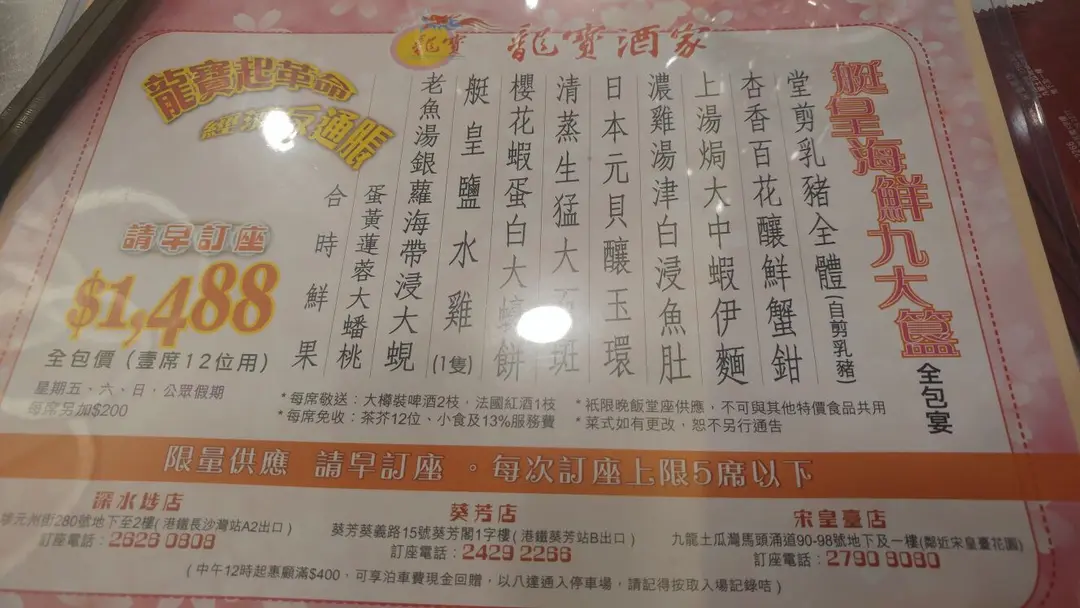 龍寶 龍寶酒家
艇皇海鮮九大簋
全包宴
堂剪乳豬全體(自剪乳豬)
杏香百花釀鮮蟹鉗
上湯焗大中蝦伊麵
濃雞湯津白浸魚肚
日本元貝釀玉環
清蒸生猛大石斑
櫻花蝦蛋白大蠔餅
艇皇鹽水雞(1隻)
老魚湯銀蘿海帶浸大蜆
蛋黃蓮蓉大蟠桃
合時鮮果
龍寶起革命
通脹
請早訂座
$1,488
全包價(壹席12位用)
星期五、六、日,公眾假期
每席另加$200
*每席敬送:大樽裝啤酒2枝,法國紅酒1枝
*每席免收:茶芥12位、小食及13%服務費
*祇限晚飯堂座供應,不可與其他特價食品共用
*菜式如有更改,恕不另行通告
限量供應 請早訂座 。每次訂座上限5席以下
深水埗店
元州街280號地下至2樓(港鐵長沙灣站A2出口)
訂座電話:2626 0808
葵芳店
葵芳葵義路15號葵芳閣1字樓(港鐵葵芳站B出口)
訂座電話:2429 2266
宋皇臺店
九龍土瓜灣馬頭涌道90-98號地下及一樓(鄰近宋皇臺花園)
訂座電話:2790 8080
(中午12時起惠顧滿$400,可享泊車費現金回贈,以八達通入停車場,請記得按取入場記錄咭)